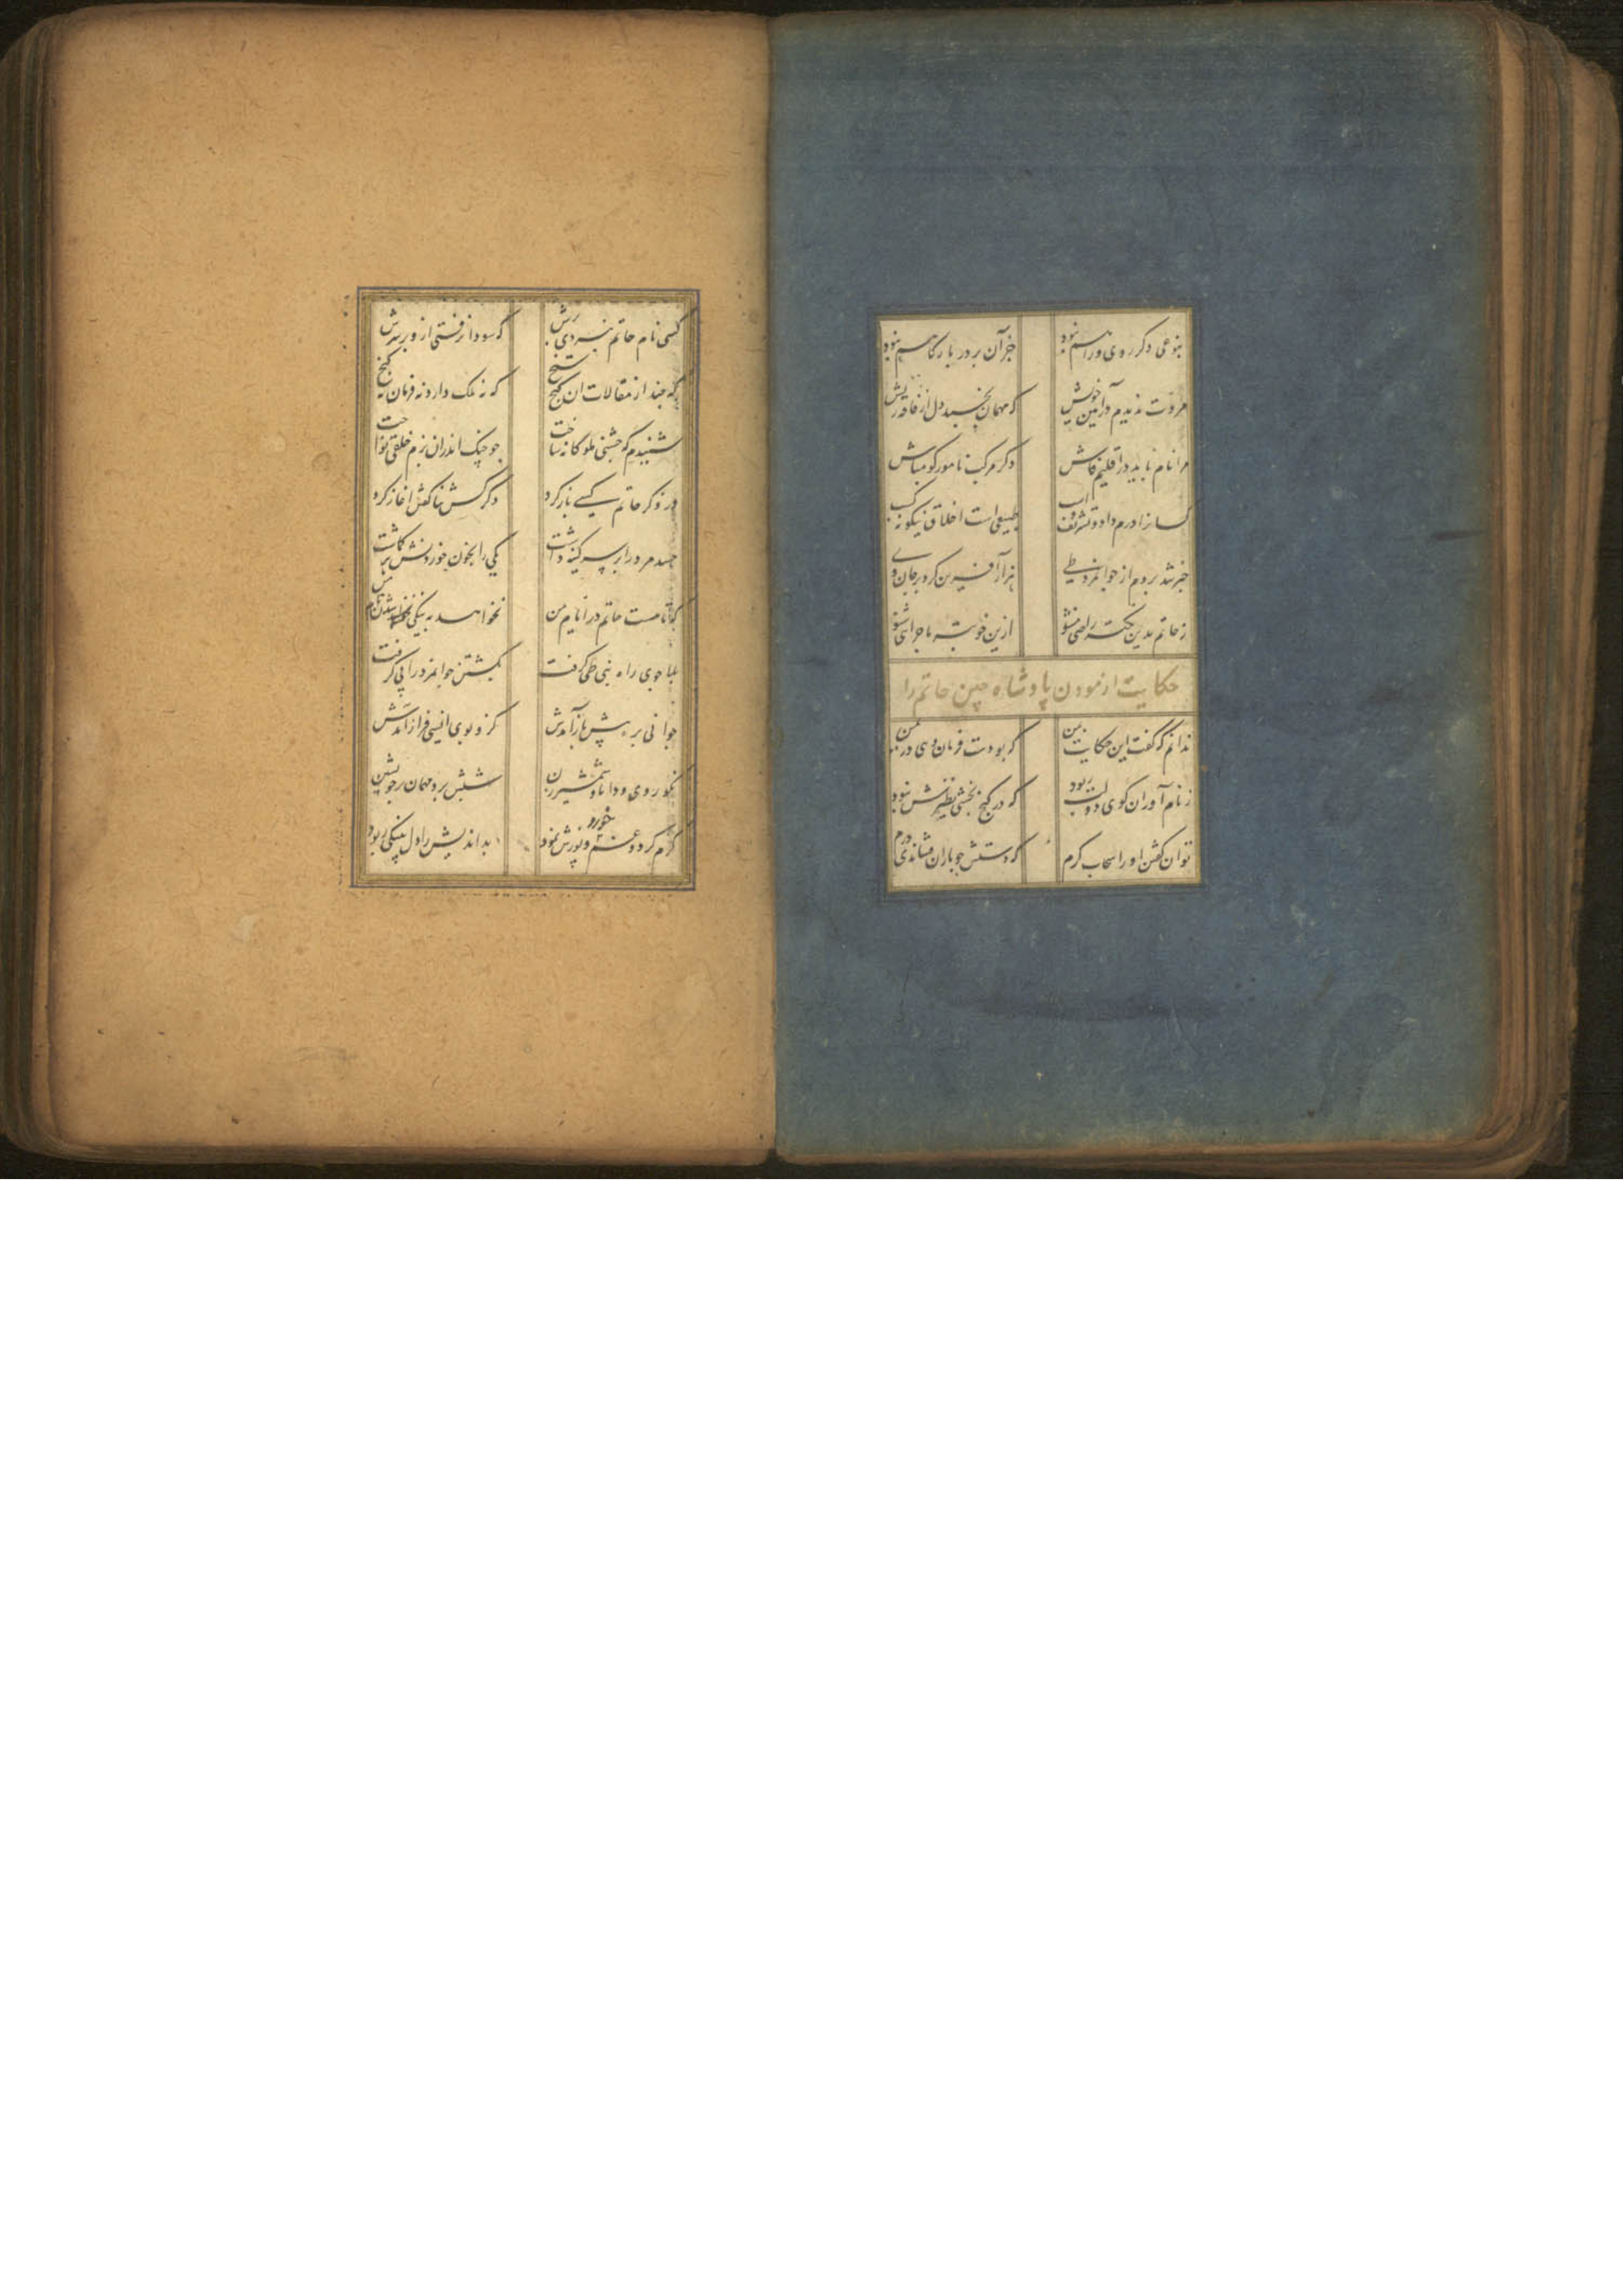 بنوعی دکر روی وراهم نبود جزآن بر در بارکاهم نبود
مروت ندیدم در آیین خویش که مهمان بخسبد دل از فاقه ریش
مرا نام باید در اقلیم فاش دکر مرکب نامور کو مباش
کسانرا درم داد و تشریف و اسب طبیعی است اخلاق نیکو نه کسب
خبر شد بروم از جوانمرد طی هزار آفرین کرد بر جان وی
ز حاتم بدین نکته راضی مشو ازین خوبتر ماجرای شنو
حکایت ازمودن پادشاه چین حاتم را
ندانم که کفت این حکایت بمن که بودست فرمان دهی در یمن
ز نام آوران کوی دولت ربود که در کنج بخشی نظیرش نبود
توان کفتن او را سحاب کرم که دستش چو باران فشاندی درم
کسی نام حاتم نبردی برش که سودا نرفتی ازو بر سرش
که چند از مقالات ان باد سنج که نه ملک دارد نه فرمان نه کنج
شنیدم که جشنی ملوکانه ساخت چو چنک اندران بزم خلقی نواخت
در ذکر حاتم کسی باز کرد دکر کس ثنا کفتن اغاز کرد
حسد مرد را بر سر کینه داشت یکی را بخون خوردنش بر کماشت
که تا هست حاتم در ایام من نخواهد به نیکی شدن نام من
بلا جوی راه بنی طی کرفت بکشتن جوانمرد را پی کرفت
جوانی بره پیش باز آمدش کزو بوی انسی فراز آمدش
نکو روی و دانا و شیرین زبان بر خویش برد ان شبش میهمان
کرم کرد و غم خورد و پوزش نمود بد اندیش را دل بنیکی ربود